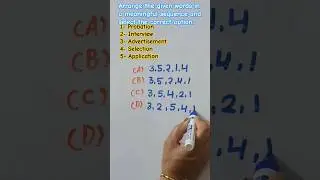 Arrange the given words in
a meaningful sequence and
select the correct option.
1- Probation
2- Interview
3- Advertisement
4- Selection
5- Application
(A) 3,5,2,1,4
(B) 3,5,2,4,1
(C) 3,5,4,2,1
(D) 3,2,5,4,1